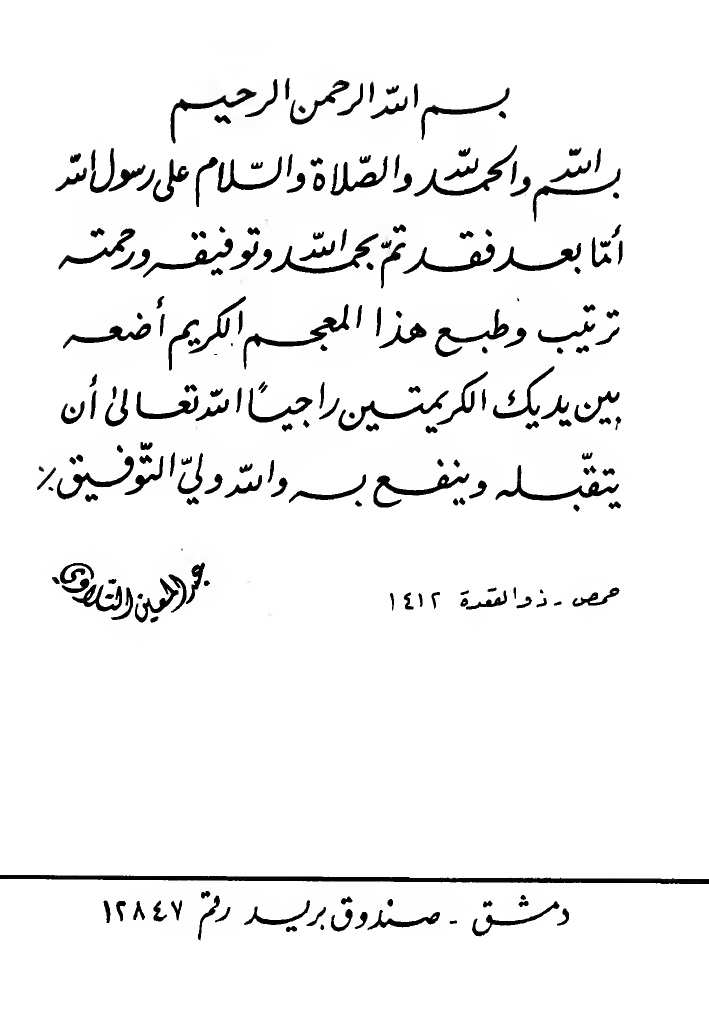 بسم الله الرحمن الرحيم
بسم الله والحمد لله والصّلاة والسّلام على رسول الله
أمّا بعد فقد تمّ بحمد الله وتوفيقه ورحمته
ترتيب وطبع هذا المعجم الكريم أضعه
بين يديك الكريمتين راجياً الله تعالى أن
يتقبّله وينفع به والله وليّ التّوفيق ٪
حمص - ذو القعدة ١٤١٢
عبد المعين التلاوي
دمشق - صندوق بريد رقم ١٢٨٤٧